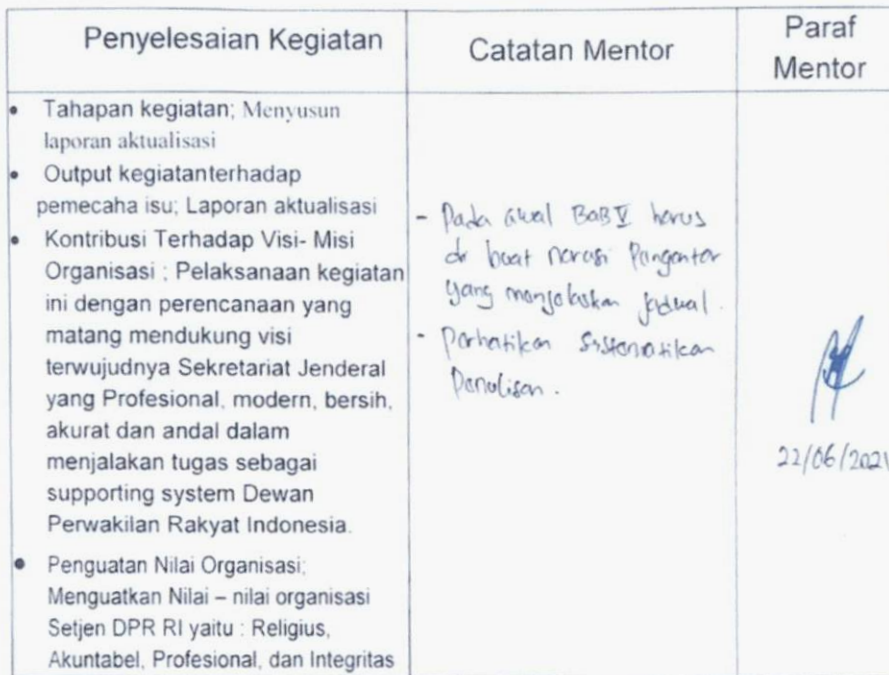 Penyelesaian Kegiatan
Catatan Mentor
Paraf
Mentor
• Tahapan kegiatan; Menyusun
laporan aktualisasi
• Output kegiatanterhadap
pemecaha isu; Laporan aktualisasi
• Kontribusi Terhadap Visi- Misi
Organisasi : Pelaksanaan kegiatan
ini dengan perencanaan yang
matang mendukung visi
terwujudnya Sekretariat Jenderal
yang Profesional, modern, bersih,
akurat dan andal dalam
menjalakan tugas sebagai
supporting system Dewan
Perwakilan Rakyat Indonesia.
• Penguatan Nilai Organisasi;
Menguatkan Nilai – nilai organisasi
Setjen DPR RI yaitu : Religius,
Akuntabel, Profesional, dan Integritas
- Pada awal BAB V harus
di buat narasi Pengantar
yang menjelaskan jadwal.
- Perhatikan Sistematikan
Penulisan.
22/06/2021